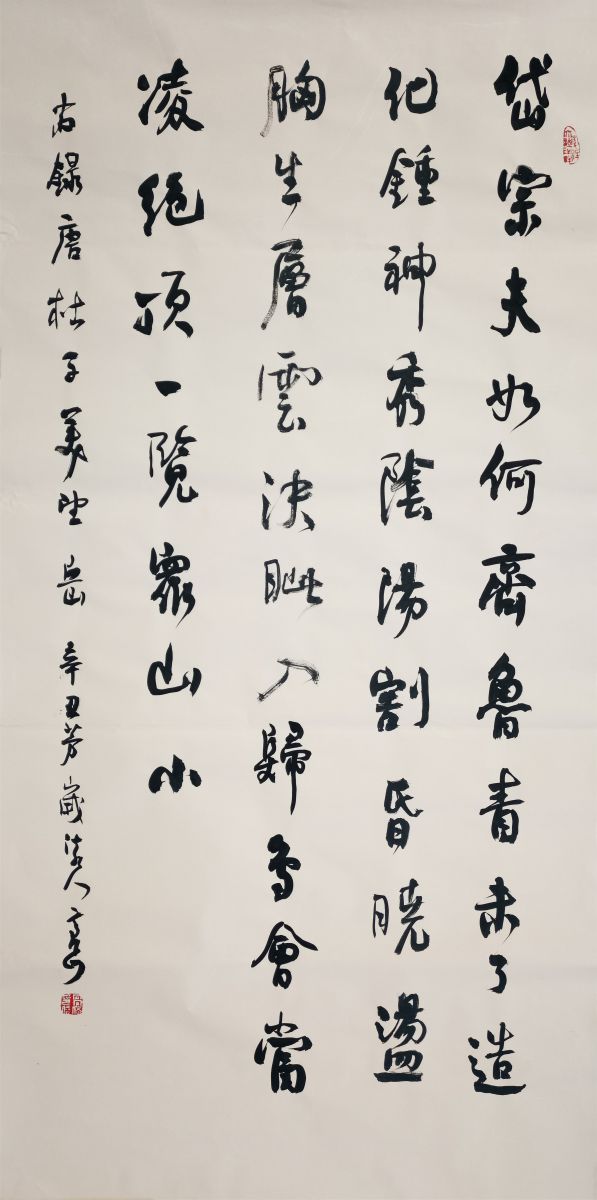 岱宗夫如何齊魯青未了造
化鍾神秀陰陽割昏曉盪
胸生層雲決眦入歸鳥會當
凌絕頂一覽衆山小
錄唐杜子美望岳 辛丑芳歲